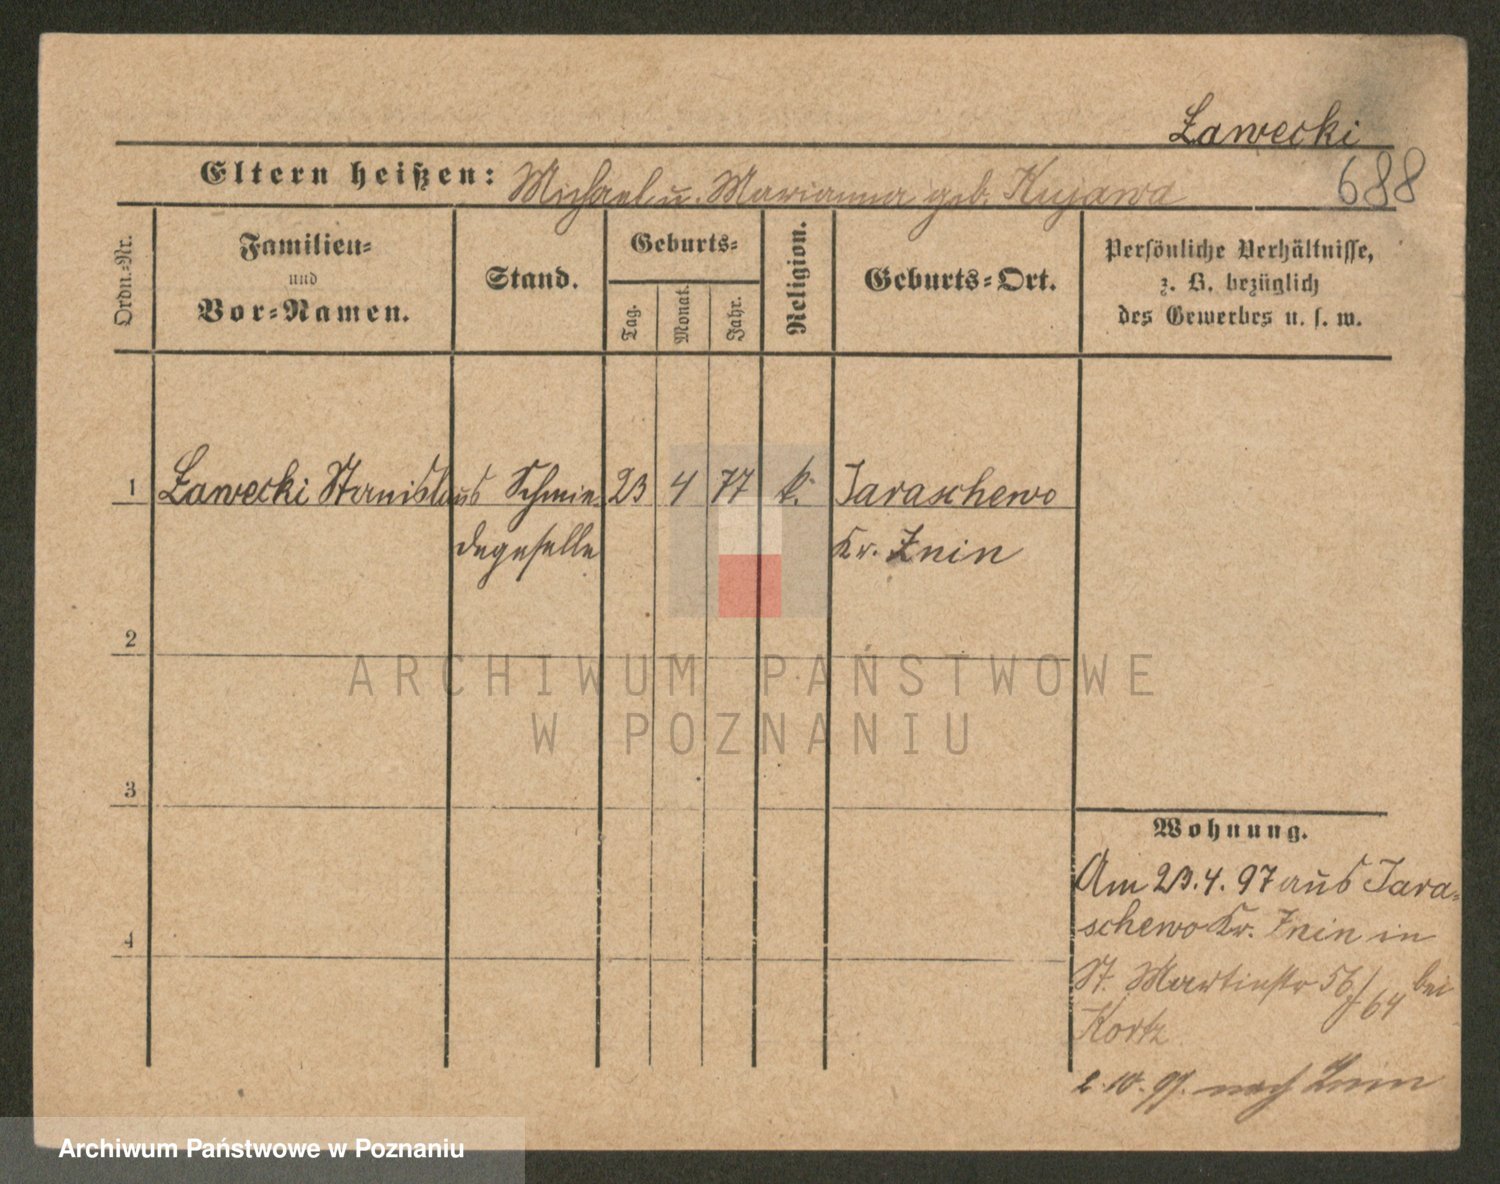 Ławecki
688
Eltern heißen: Michael u. Marianna geb. Kujawa
Ordn.-Nr.
Familien-
und
Vor-Namen.
Stand.
Geburts-
Tag.
Monat.
Jahr.
Religion.
Geburts-Ort.
Persönliche Verhältnisse,
z. B. bezüglich
des Gewerbes u. s. w.
1 Ławecki Stanislaus Schmie- 23 4 77 k. Jaraschewo
degeselle Kr. Znin
2
3
4
Wohnung.
Am 23.4.97 aus Jara-
schewo Kr. Znin in
St. Martinstr 56/64 bei
Kortz
2.10.97. nach Znin
ARCHIWUM PAŃSTWOWE
W POZNANIU
Archiwum Państwowe w Poznaniu